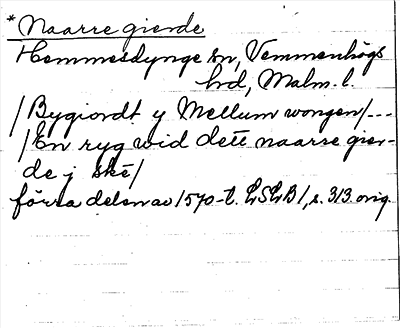 *Naarre gierde
Hemmesdynge sn, Vemmenhögs
hd, Malm. l.
/Bygiordt y Mellum wongen/...
/En ryg wid dett naarre gier-
de j skè/
förra delen av 1570-t. LSLB1, s. 313. orig.